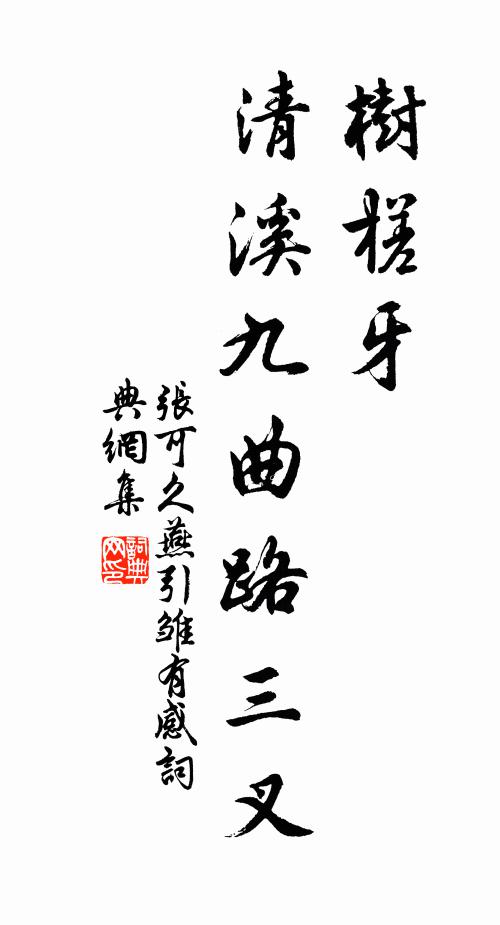 樹槎牙
清溪九曲路三叉
張可久燕引雏有感詞
典網集
詞典
网印